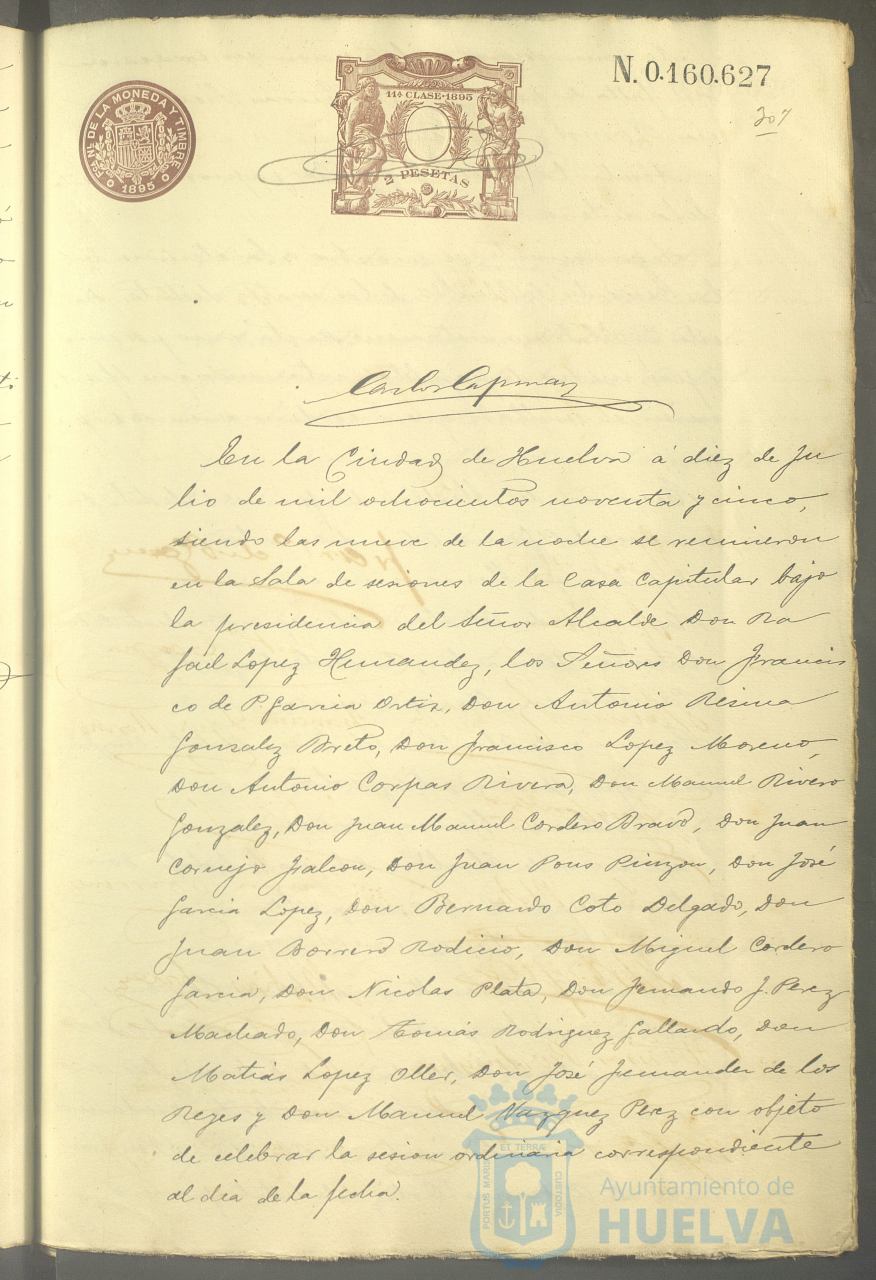 N. 0.160.627
307
FCA. N. DE LA MONEDA Y TIMBRE
1895
11ª CLASE·1895
2 PESETAS
Carlos Capman
En la Ciudad de Huelva á diez de Ju
lio de mil ochocientos noventa y cinco,
siendo las nueve de la noche se reunieron
en la Sala de sesiones de la Casa Capitular bajo
la presidencia del Señor Alcalde Don Ra
fael Lopez Hernandez, los Señores Don Francis
co de P. Garcia Ortiz, Don Antonio Resina
Gonzalez Breto, Don Francisco Lopez Moreno,
Don Antonio Corpas Rivera, Don Manuel Rivero
Gonzalez, Don Juan Manuel Cordero Bravo, Don Juan
Cornejo Falcon, Don Juan Pons Pinzon, Don José
Garcia Lopez, Don Bernardo Coto Delgado, Don
Juan Borrero Rodicio, Don Miguel Cordero
Garcia, Don Nicolas Plata, Don Fernando J. Perez
Machado, Don Tomás Rodriguez Gallardo, Don
Matias Lopez Oller, Don José Fernandez de los
Reyes y Don Manuel Vazquez Perez con objeto
de celebrar la sesion ordinaria correspondiente
al dia de la fecha.
PORTUS MARIS ET TERRÆ CUSTODIA
Ayuntamiento de
HUELVA